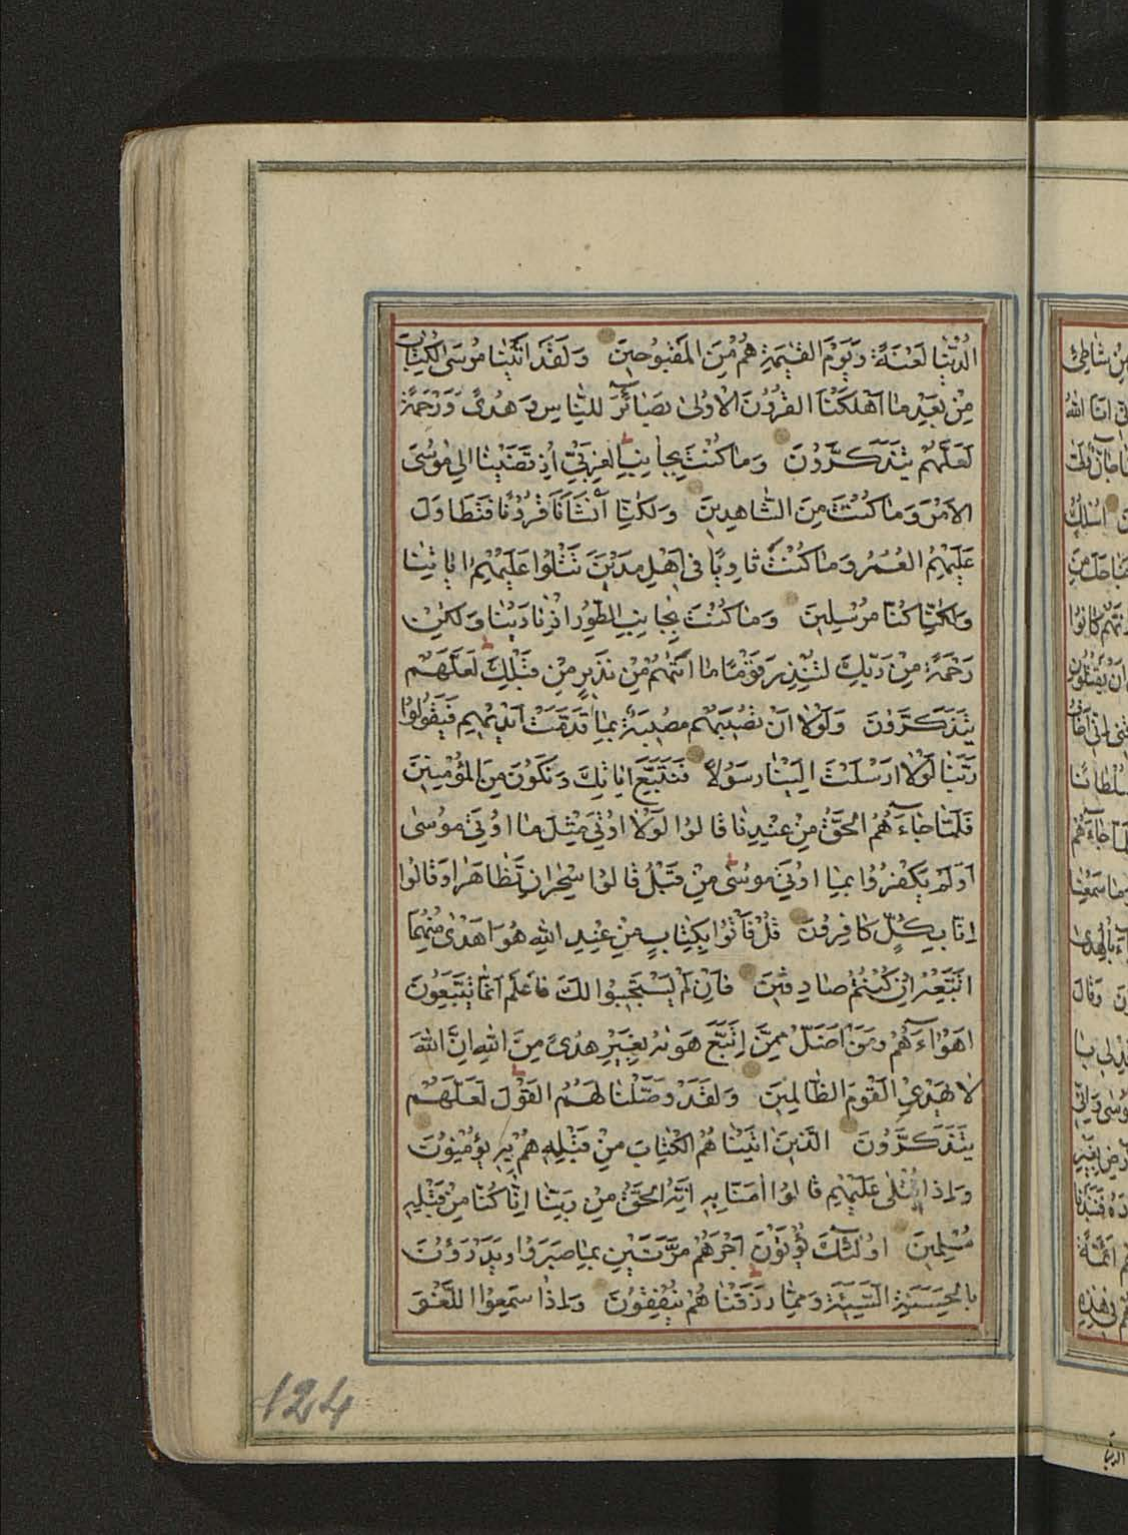 الدُّنْيَا لَعْنَةً وَيَوْمَ الْقِيٰمَةِ هُمْ مِنَ الْمَقْبُوحِينَ وَلَقَدْ اٰتَيْنَا مُوسَى الْكِتَابَ
مِنْ بَعْدِ مَا اَهْلَكْنَا الْقُرُونَ الْاُولىٰ بَصَائِرَ لِلنَّاسِ وَهُدًى وَرَحْمَةً
لَعَلَّهُمْ يَتَذَكَّرُونَ وَمَا كُنْتَ بِجَانِبِ الْغَرْبِيِّ اِذْ قَضَيْنَا اِلٰى مُوسَى
الْاَمْرَ وَمَا كُنْتَ مِنَ الشَّاهِدِينَ وَلٰكِنَّا اَنْشَاْنَا قُرُونًا فَتَطَاوَلَ
عَلَيْهِمُ الْعُمُرُ وَمَا كُنْتَ ثَاوِيًا فِى اَهْلِ مَدْيَنَ تَتْلُوا عَلَيْهِمْ اٰيَاتِنَا
وَلٰكِنَّا كُنَّا مُرْسِلِينَ وَمَا كُنْتَ بِجَانِبِ الطُّورِ اِذْ نَادَيْنَا وَلٰكِنْ
رَحْمَةً مِنْ رَبِّكَ لِتُنْذِرَ قَوْمًا مَا اَتٰهُمْ مِنْ نَذِيرٍ مِنْ قَبْلِكَ لَعَلَّهُمْ
يَتَذَكَّرُونَ وَلَوْلَا اَنْ تُصِيبَهُمْ مُصِيبَةٌ بِمَا قَدَّمَتْ اَيْدِيهِمْ فَيَقُولُوا
رَبَّنَا لَوْلَا اَرْسَلْتَ اِلَيْنَا رَسُولًا فَنَتَّبِعَ اٰيَاتِكَ وَنَكُونَ مِنَ الْمُؤْمِنِينَ
فَلَمَّا جَاءَهُمُ الْحَقُّ مِنْ عِنْدِنَا قَالُوا لَوْلَا اُوتِيَ مِثْلَ مَا اُوتِيَ مُوسٰى
اَوَلَمْ يَكْفُرُوا بِمَا اُوتِيَ مُوسٰى مِنْ قَبْلُ قَالُوا سِحْرَانِ تَظَاهَرَا وَقَالُوا
اِنَّا بِكُلٍّ كَافِرُونَ قُلْ فَأْتُوا بِكِتَابٍ مِنْ عِنْدِ اللّٰهِ هُوَ اَهْدٰى مِنْهُمَا
اَتَّبِعْهُ اِنْ كُنْتُمْ صَادِقِينَ فَاِنْ لَمْ يَسْتَجِيبُوا لَكَ فَاعْلَمْ اَنَّمَا يَتَّبِعُونَ
اَهْوَاءَهُمْ وَمَنْ اَضَلُّ مِمَّنِ اتَّبَعَ هَوٰيهُ بِغَيْرِ هُدًى مِنَ اللّٰهِ اِنَّ اللّٰهَ
لَا يَهْدِي الْقَوْمَ الظَّالِمِينَ وَلَقَدْ وَصَّلْنَا لَهُمُ الْقَوْلَ لَعَلَّهُمْ
يَتَذَكَّرُونَ الَّذِينَ اٰتَيْنَاهُمُ الْكِتَابَ مِنْ قَبْلِهِ هُمْ بِهِ يُؤْمِنُونَ
وَاِذَا يُتْلٰى عَلَيْهِمْ قَالُوا اٰمَنَّا بِهِ اِنَّهُ الْحَقُّ مِنْ رَبِّنَا اِنَّا كُنَّا مِنْ قَبْلِهِ
مُسْلِمِينَ اُولٰئِكَ يُؤْتَوْنَ اَجْرَهُمْ مَرَّتَيْنِ بِمَا صَبَرُوا وَيَدْرَؤُنَ
بِالْحَسَنَةِ السَّيِّئَةَ وَمِمَّا رَزَقْنَاهُمْ يُنْفِقُونَ وَاِذَا سَمِعُوا اللَّغْوَ
124